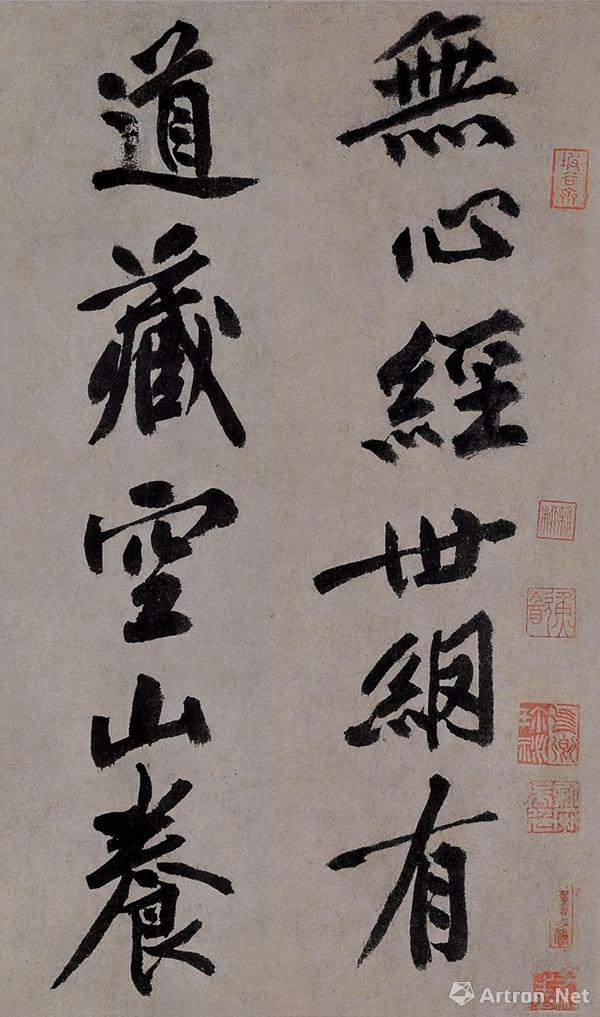 無心經世網有
道藏空山養
Artron.Net